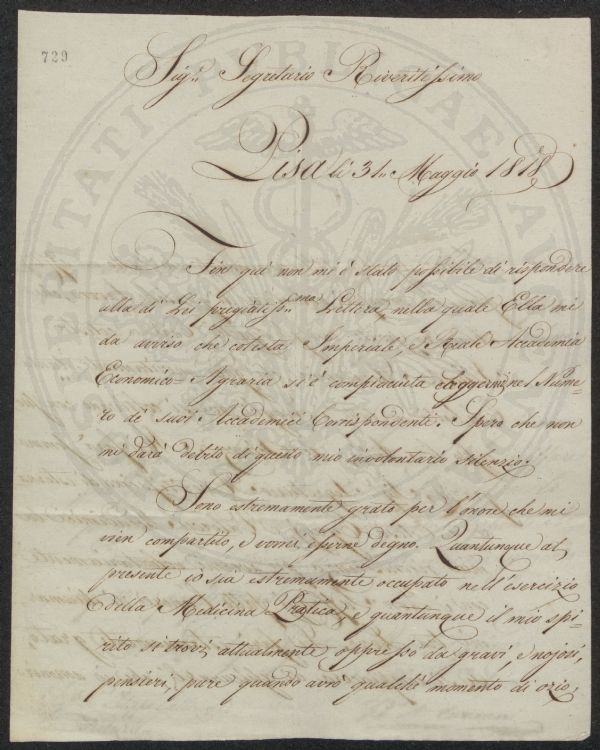 729
Sig.r Segretario Riveritissimo
Pisa li 31. Maggio 1818
Fin quì non mi è stato possibile di rispondere
alla di Lei pregiatiss.ma Lettera, nella quale Ella mi
da avviso che cotesta Imperiale, e Reale Accademia
Economico=Agraria si è compiaciuta eleggermi nel Nume=
ro de' suoi Accademici Corrispondenti. Spero che non
mi darà debito di questo mio involontario silenzio.
Sono estremamente grato per l'onore che mi
vien compartito, e vorrei esserne degno. Quantunque al
presente io sia estremamente occupato nell'esercizio
della Medicina Pratica, e quantunque il mio spi=
rito si trovi attualmente oppresso da gravi, e nojosi
pensieri, pure quando avrò qualche momento di ozio,